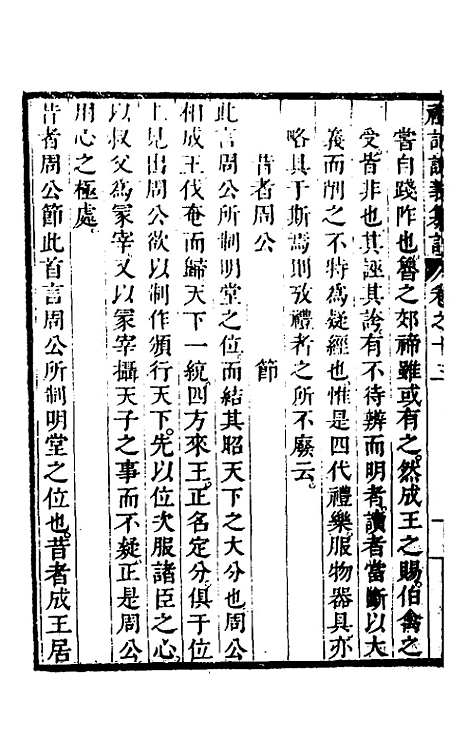 禮記說義纂訂 卷之十三
嘗自踐阼也魯之郊禘雖或有之然成王之賜伯禽之
受皆非也其誣其誇有不待辨而明者讀者當斷以大
義而削之不特為疑經也惟是四代禮樂服物器具亦
略具于斯焉則攷禮者之所不廢云
昔者周公 節
此言周公所制明堂之位而結其昭天下之大分也周公
相成王伐奄而歸天下一統四方來王正名定分俱于位
上見出周公欲以制作頒行天下先以位次服諸臣之心
以叔父為冢宰又以冢宰攝天子之事而不疑正是周公
用心之極處
昔者周公節此首言周公所制明堂之位也昔者成王居